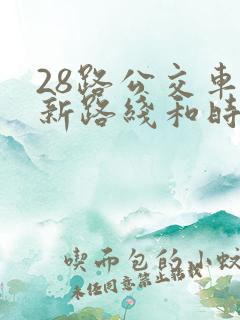 28路公交车
新路线和时
喫而包的小蚊
未经同意禁止转载